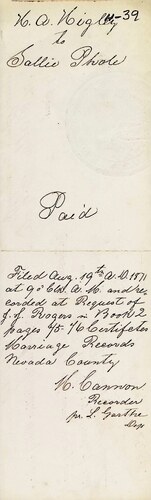 H. A. Higley 4-39
to
Sallie Phole
Paid
Filed Aug. 19th A.D. 1871
at 9 o Clk A. M. and re
corded at Request of
J. J. Rogers in Book 2
pages 75-76 Certifctes
Marriage Records
Nevada County
H. Cannon
Recorder
pr. L. Garthe
Dep